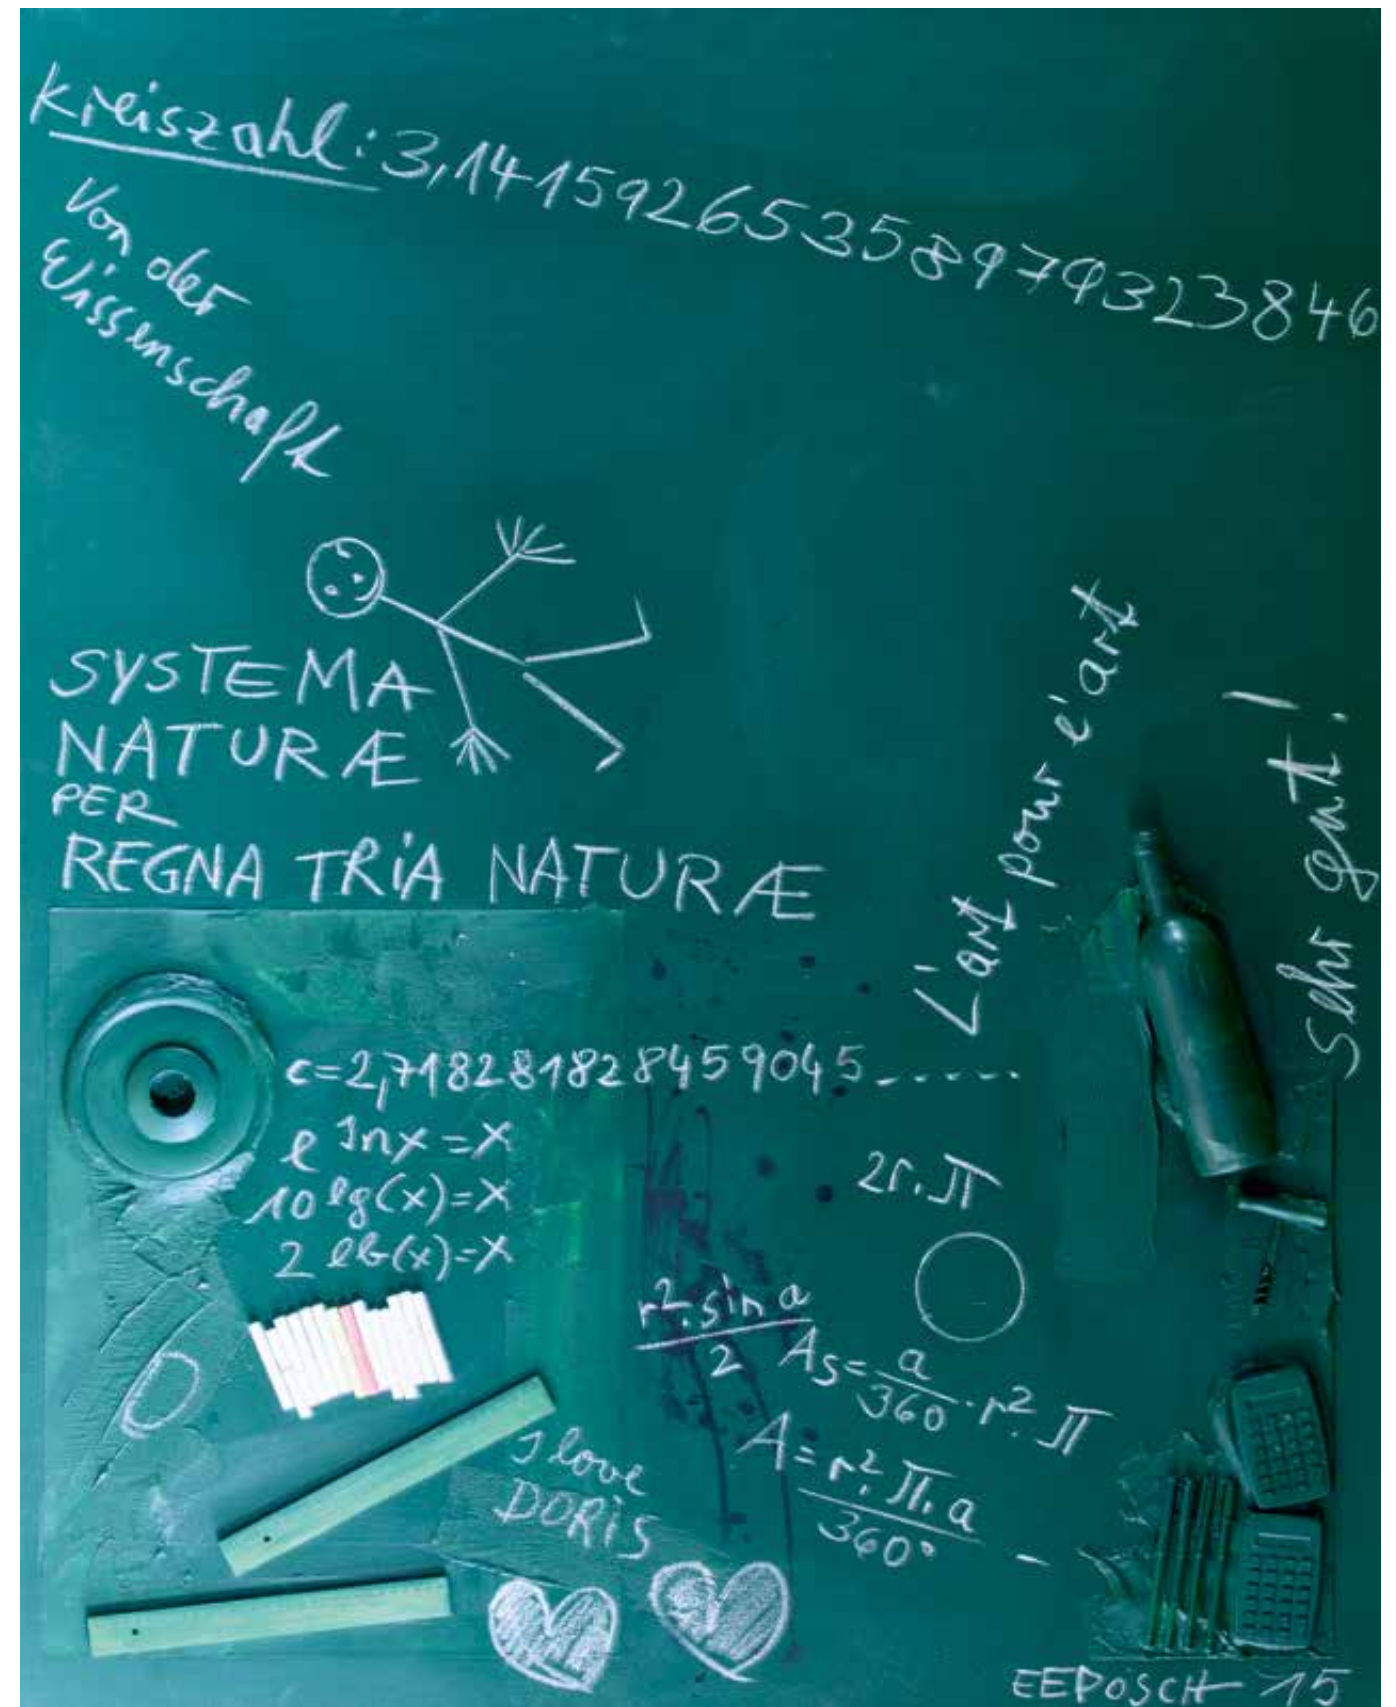 Kreiszahl: 3,14159265358979323846
Von der
Wissenschaft
SYSTEMA
NATURÆ
PER
REGNA TRIA NATURÆ
L'art pour l'art
Sehr gut!
e=2,718281828459045.....
e lnx=x
10 lg(x)=x
2 lb(x)=x
2r.π
r². sin a
2
As= a
360 · r². π
A= r². π. a
360°
I love
DORIS
EEPOSCH 15